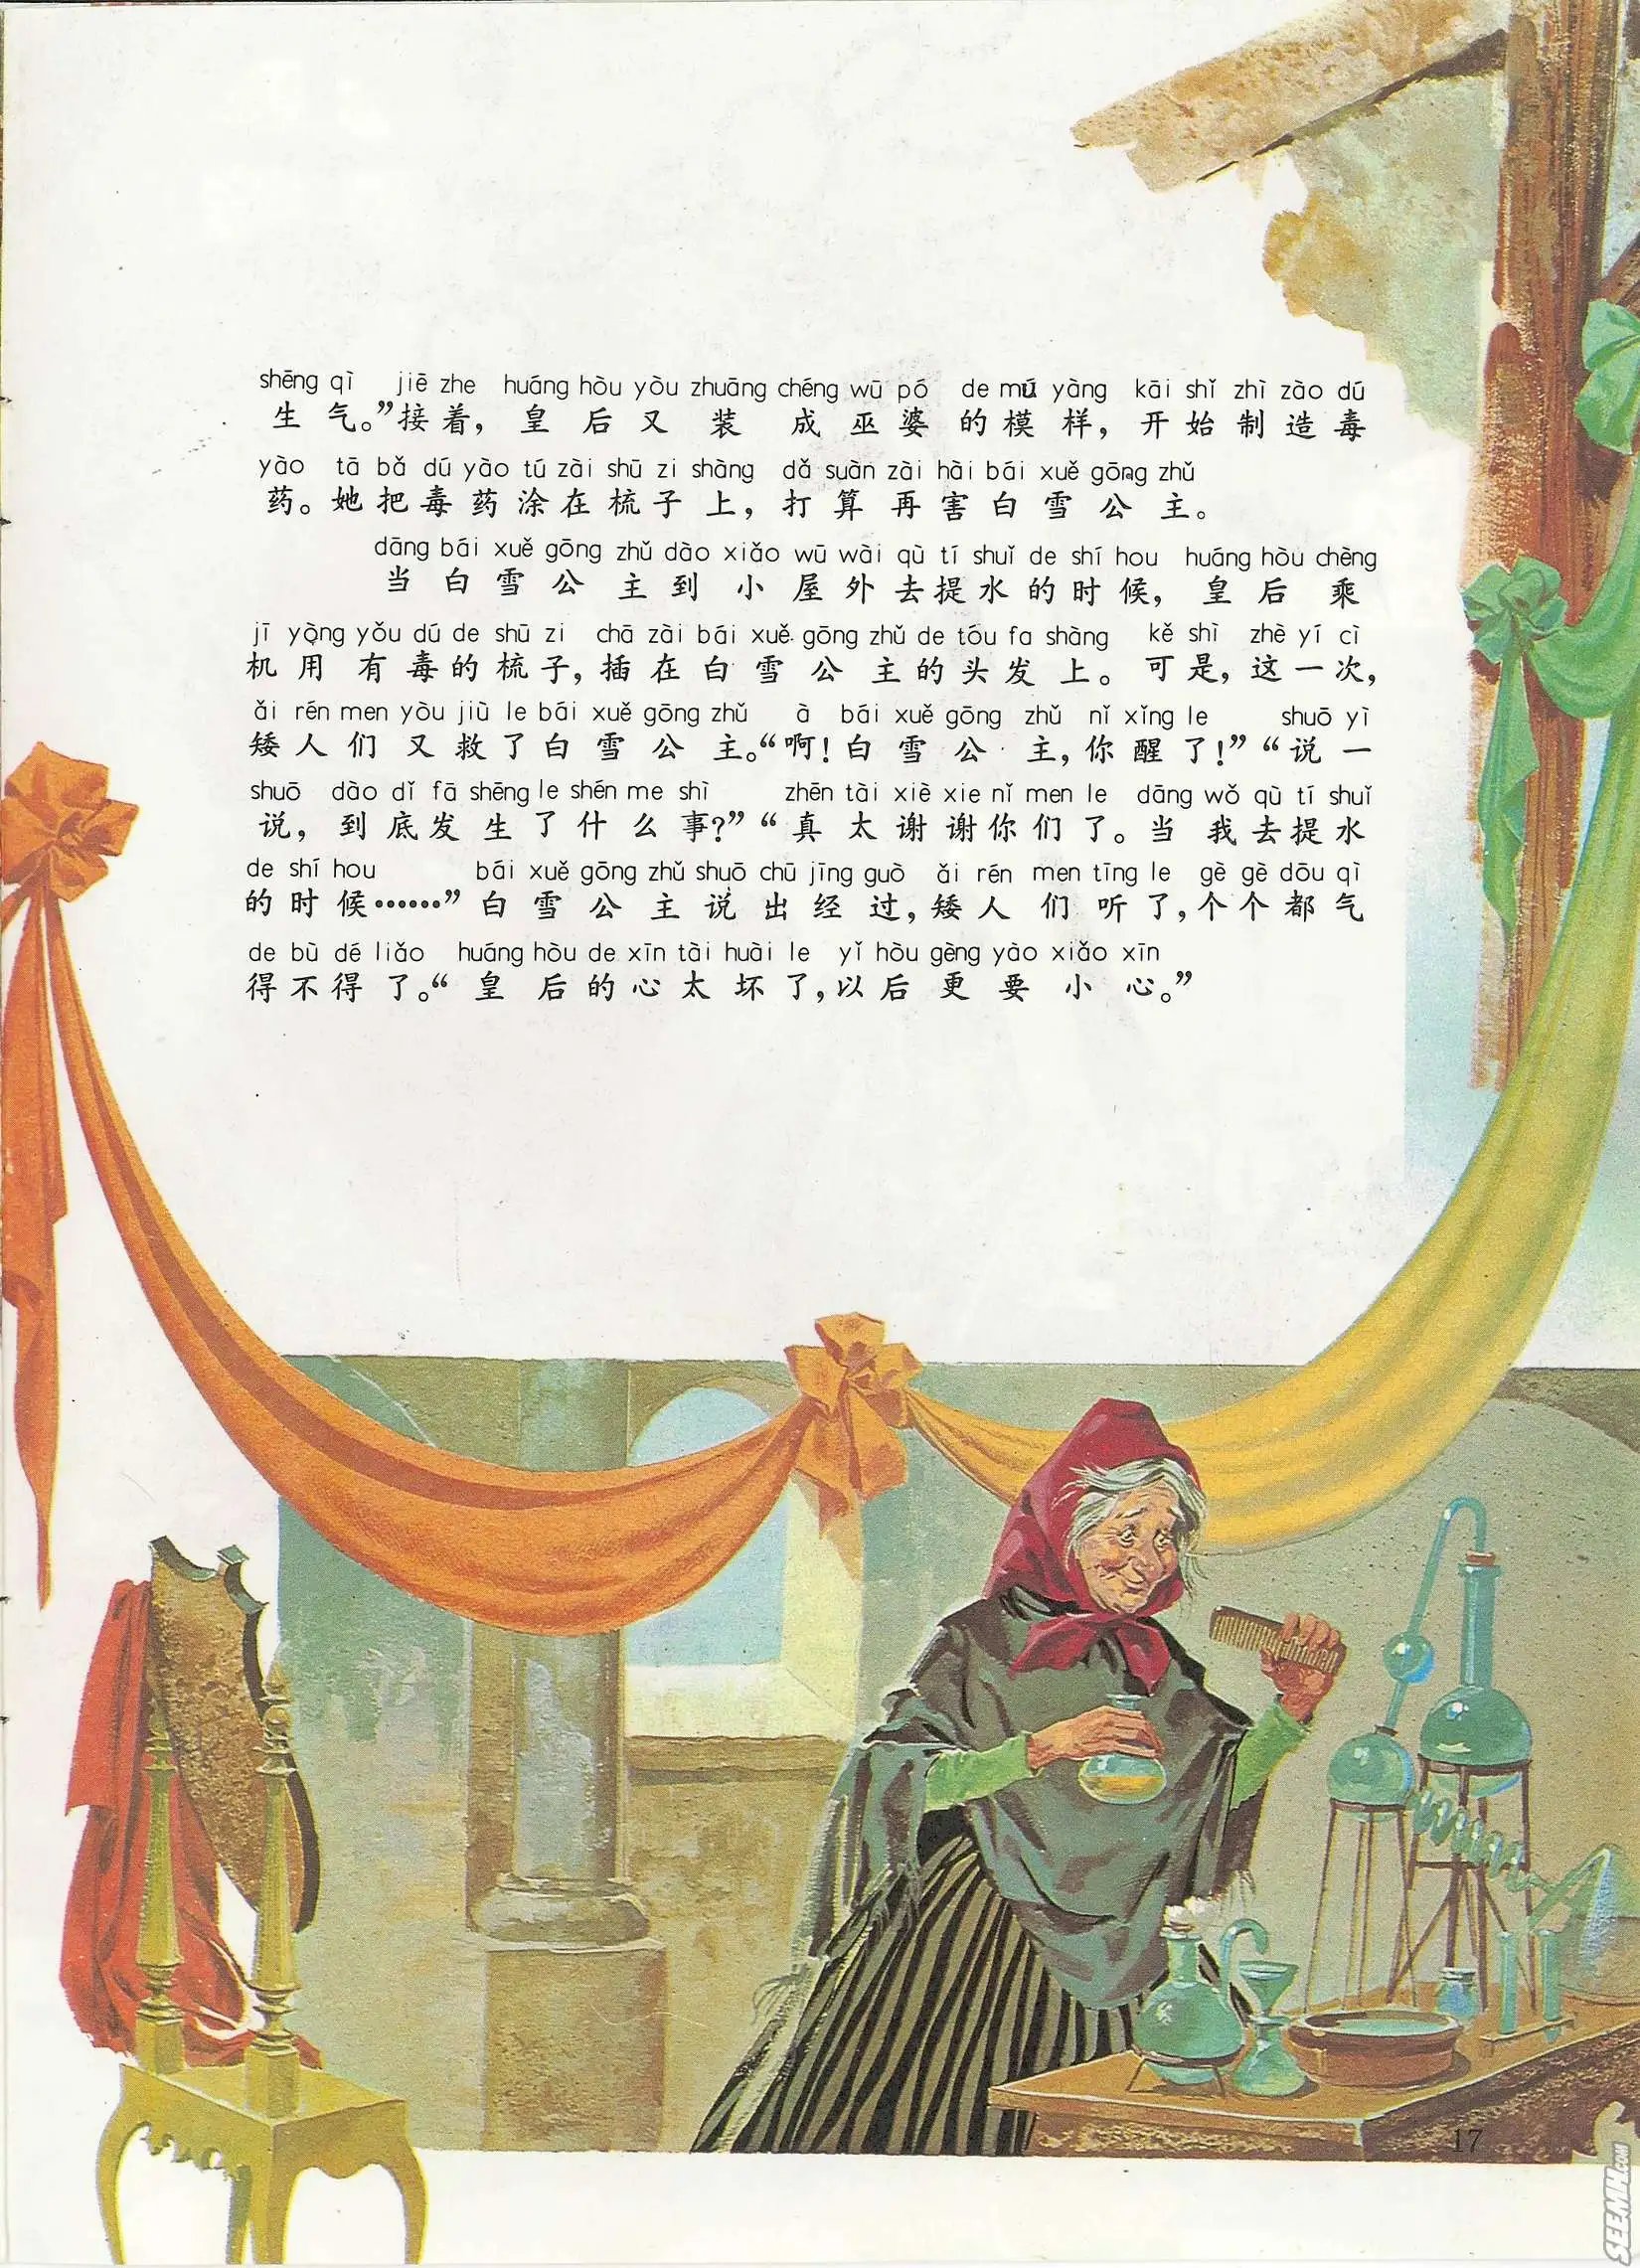 shēng qì jiē zhe huáng hòu yòu zhuāng chéng wū pó de mú yàng kāi shǐ zhì zào dú
生气。”接着，皇后又装成巫婆的模样，开始制造毒
yào tā bǎ dú yào tú zài shū zi shàng dǎ suàn zài hài bái xuě gōng zhǔ
药。她把毒药涂在梳子上，打算再害白雪公主。
dāng bái xuě gōng zhǔ dào xiǎo wū wài qù tí shuǐ de shí hou huáng hòu chèng
当白雪公主到小屋外去提水的时候，皇后乘
jī yòng yǒu dú de shū zi chā zài bái xuě gōng zhǔ de tóu fa shàng kě shì zhè yí cì
机用有毒的梳子，插在白雪公主的头发上。可是，这一次，
ǎi rén men yòu jiù le bái xuě gōng zhǔ à bái xuě gōng zhǔ nǐ xǐng le shuō yì
矮人们又救了白雪公主。“啊！白雪公主，你醒了！”“说一
shuō dào dǐ fā shēng le shén me shì zhēn tài xiè xie nǐ men le dāng wǒ qù tí shuǐ
说，到底发生了什么事？”“真太谢谢你们了。当我去提水
de shí hou bái xuě gōng zhǔ shuō chū jīng guò ǎi rén men tīng le gè gè dōu qì
的时候……”白雪公主说出经过，矮人们听了，个个都气
de bù dé liǎo huáng hòu de xīn tài huài le yǐ hòu gèng yào xiǎo xīn
得不得了。“皇后的心太坏了，以后更要小心。”
17
SEEMH.COM